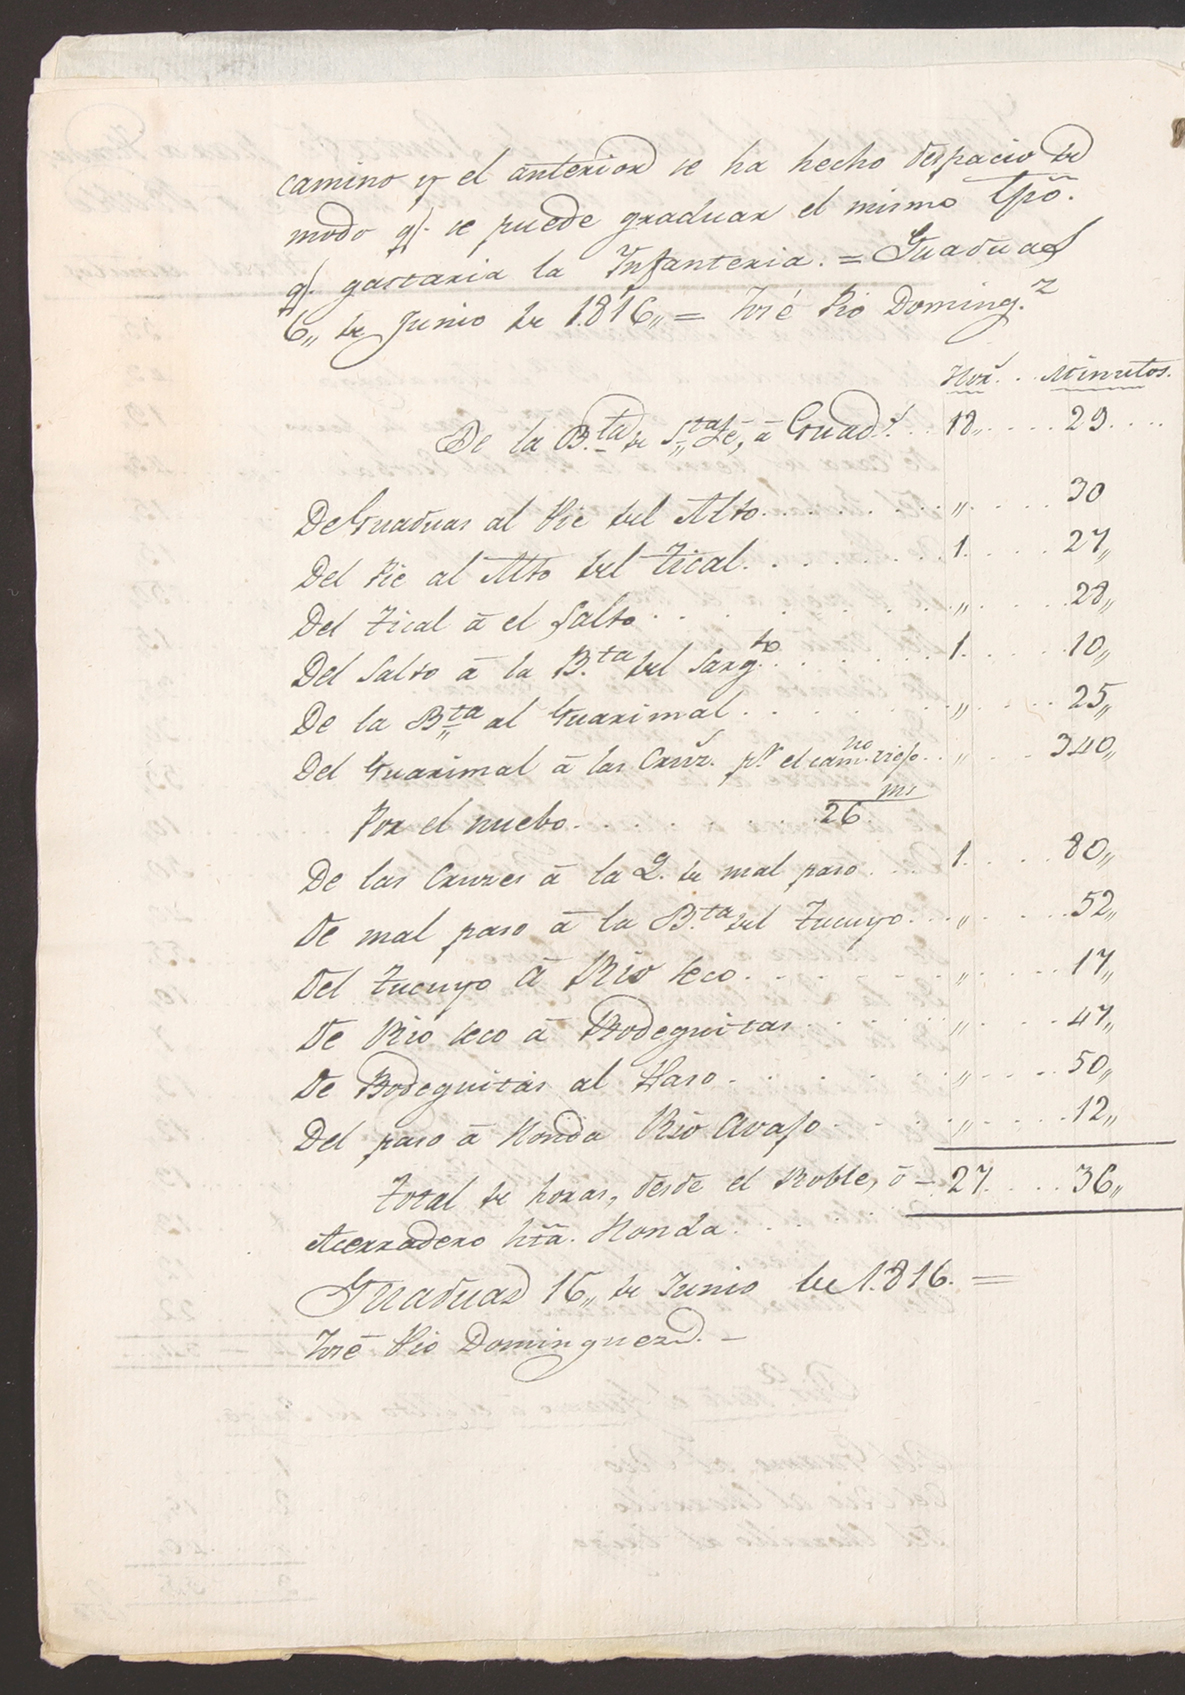 camino y el anterior se ha hecho despacio de
modo q.e se puede graduar el mismo tpõ.
q.e gastaria la Infanteria. = Guaduas
6,, de Junio de 1.816,, = José Pio Doming.z
Hor.s . . Minutos.
De la B.ta de S.ta Fé, à Guad.s . . 18,, . . . . 29 . . . .
De Guaduas al Pie del Alto . . . . . . . . ,, . . . . 30
Del Pie al Alto del Zical . . . . . . . . 1. . . . . 27,,
Del Zical à el Salto . . . . . . . . ,, . . . . 28,,
Del Salto à la B.ta del Sarg.to . . . . . . . 1. . . . . 10,,
De la B.ta al Guarimal . . . . . . . . ,, . . . . 25,,
Del Guarimal à las Cruz.s p.r el cam.no viejo . . ,, . . . 340,,
Por el nuebo . . . . . . . . 26 ms
De las Cruzes à la Q. de mal paso . . . 1. . . . . 80,,
De mal paso à la B.ta del Tucuyo . . . ,, . . . . 52,,
Del Tucuyo à Rio seco . . . . . . . ,, . . . . 17,,
De Rio seco à Bodeguitas . . . . . . ,, . . . . 47,,
De Bodeguitas al Paso . . . . . . . ,, . . . . 50,,
Del paso à Honda Rio Avajo . . . . ,, . . . . 12,,
Total de horas, desde el Roble, ó – 27. . . . 36,,
Acerradero htã. Honda . . . . .
Guaduas 16,, de Junio de 1.816. =
José Pio Dominguez. –